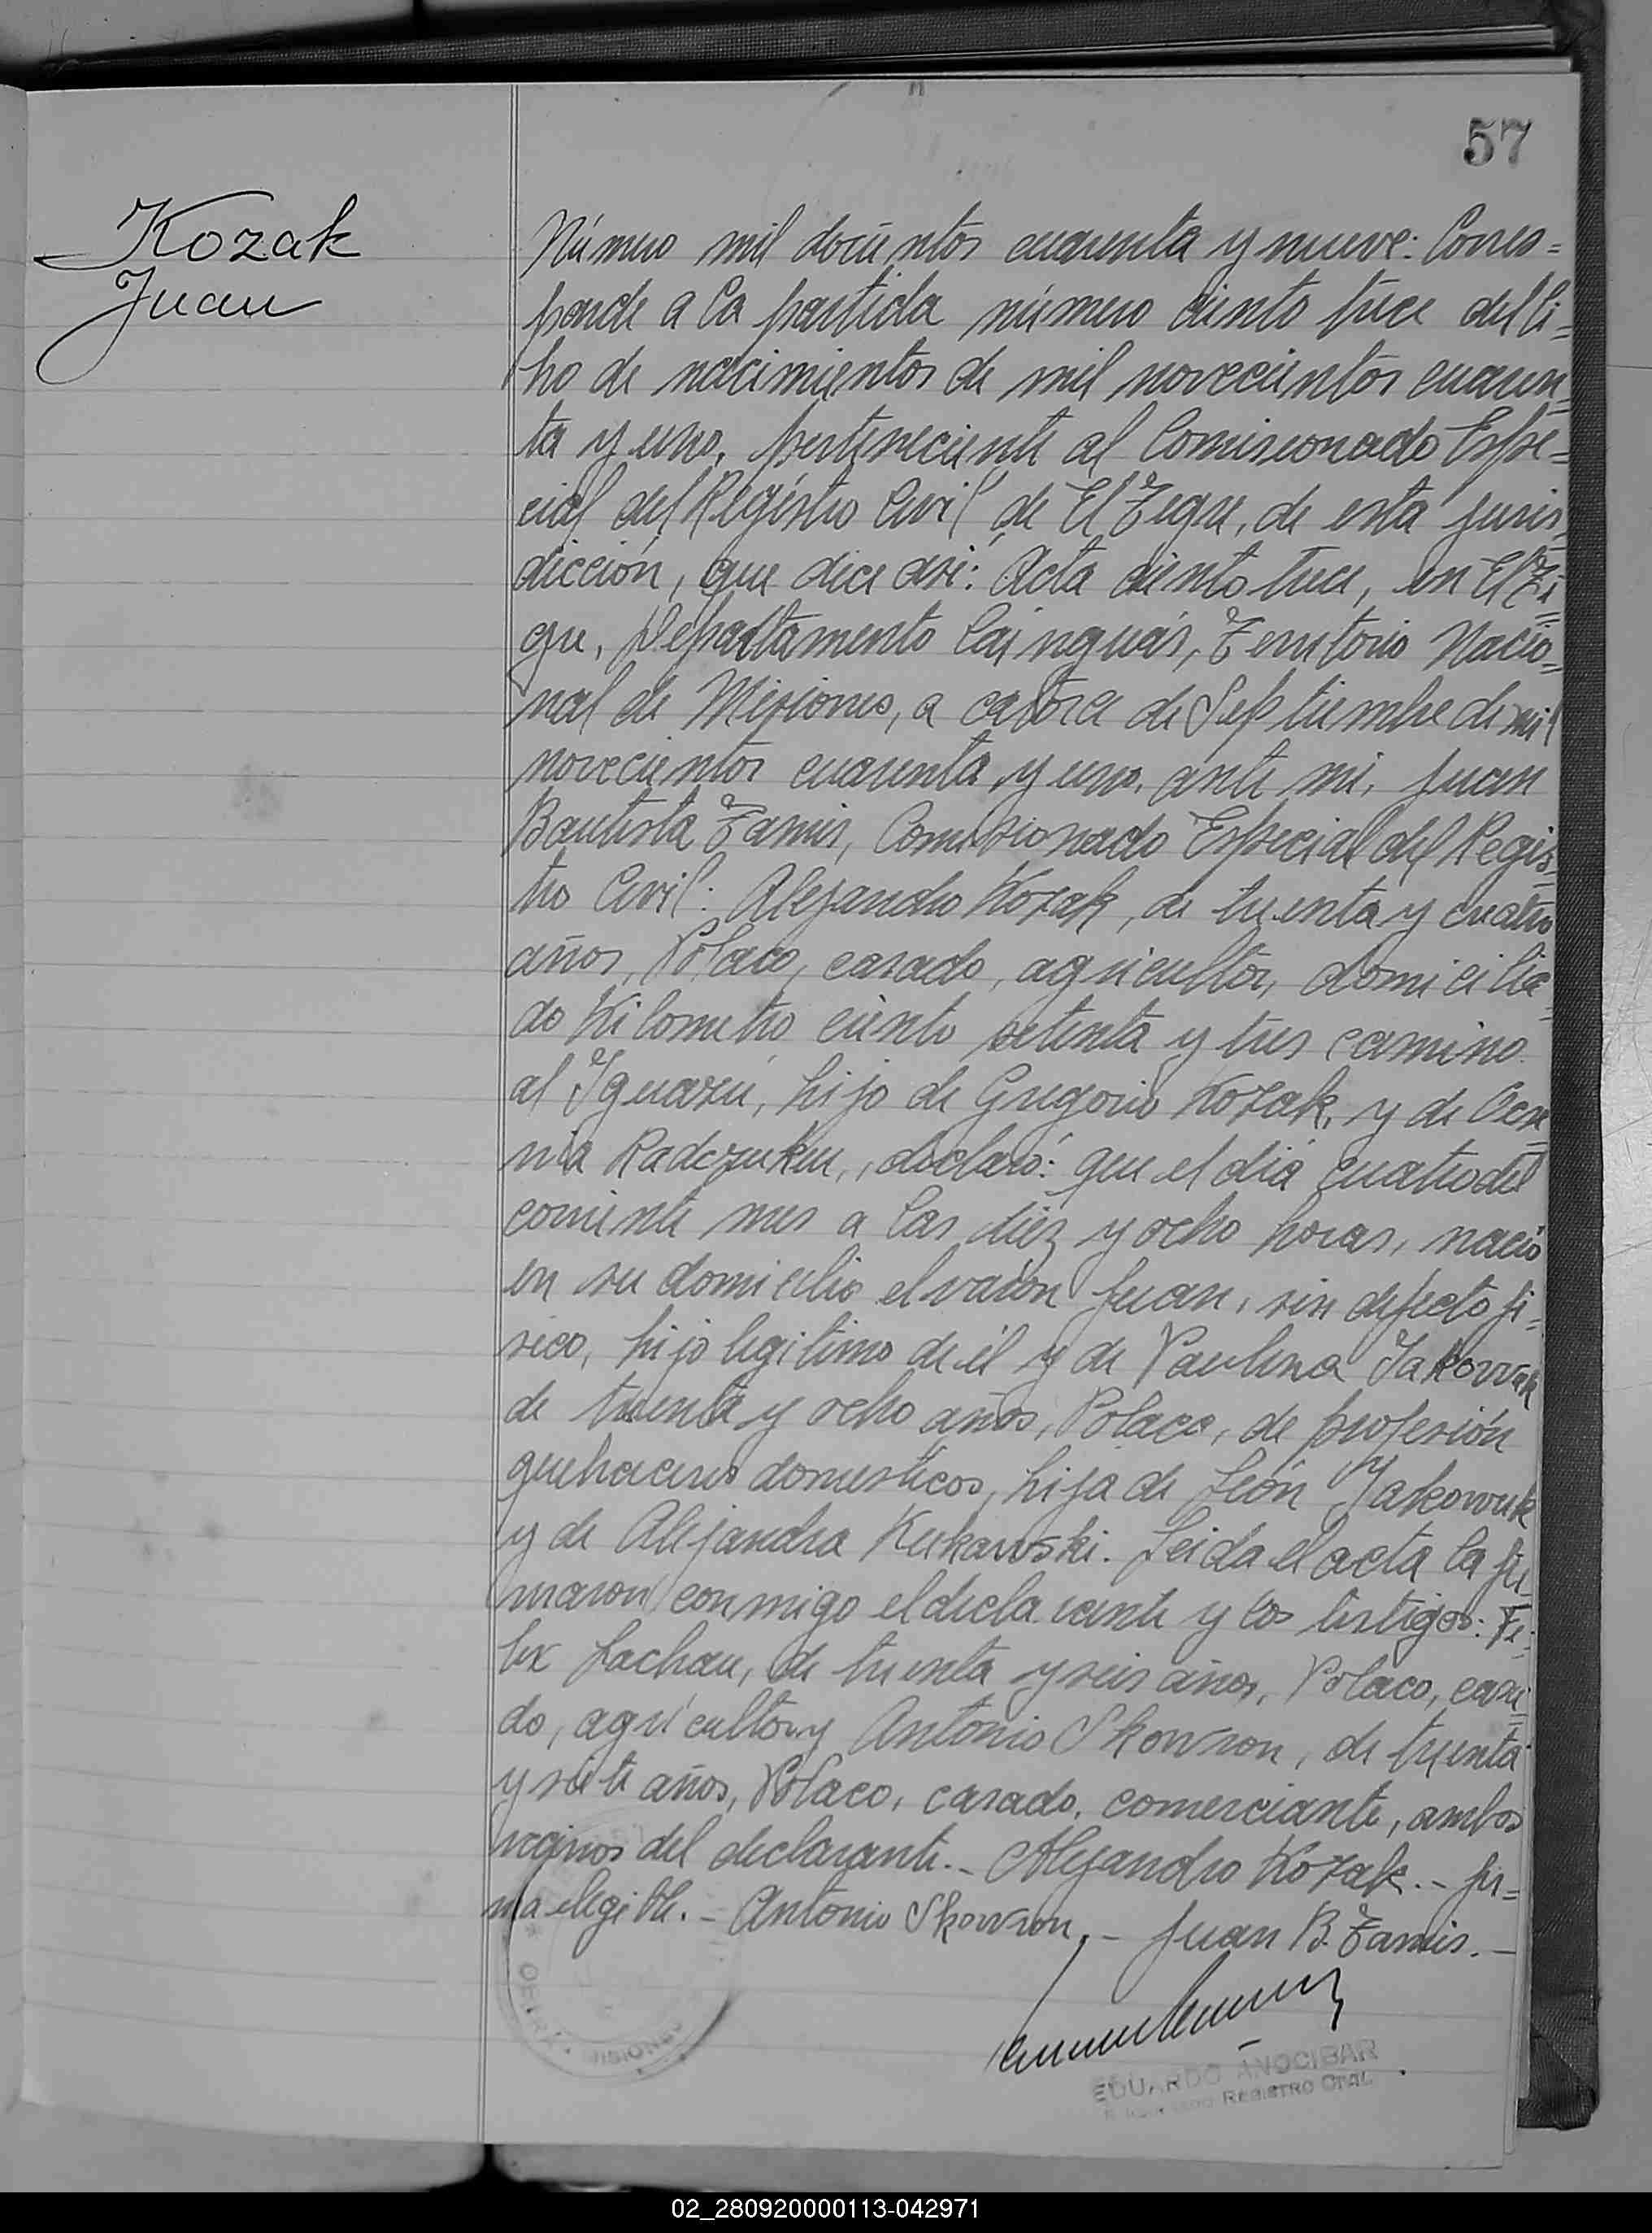 57
Kozak
Juan
Número mil docientos cuarenta y nueve: Corres=
ponde a la partida número ciento trece del li=
bro de nacimientos de mil novecientos cuaren=
ta y uno, perteneciente al Comisionado Espe=
cial del Registro Civil de El Tigre, de esta juris=
dicción, que dice asi: Acta ciento trece, en El Ti=
gre, Departamento Cainguás, Territorio Nacio=
nal de Misiones, a catorce de Septiembre de mil
novecientos cuarenta y uno, ante mi, Juan
Bautista Tamis, Comisionado Especial del Regis=
tro Civil: Alejandro Kozak, de treinta y cuatro
años, Polaco, casado, agricultor, domicilia=
do Kilometro ciento setenta y tres camino
al Iguazú, hijo de Gregorio Kozak, y de
nia declaró: que el día cuatro del
corriente mes a las diez y ocho horas, nació
en su domicilio el varón Juan, sin defecto fi=
sico, hijo legitimo de él y de Paulina
de treinta y ocho años, Polaca, de profesión
quehaceres domesticos, hija de León Jakowuk
y de Alejandra Kukawski. Leida el acta la fir
maron conmigo el declarante y los testigos: Fe=
lix Lachau, de treinta y seis años, Polaco, casa=
do, agricultor y Antonio Skowron, de treinta
y siete años, Polaco, casado, comerciante, ambos
vecinos del declarante.- Alejandro Kozak.- fir=
ma elegible.- Antonio Skowron.- Juan B. Tamis.-
OBERA • MISIONES
EDUARDO ANOCIBAR
REGISTRO CIVIL
02_280920000113-042971